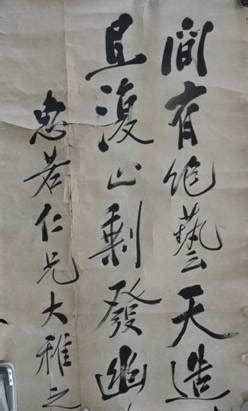 間有絶藝天造
且復山剩發幽
若仁兄大雅之